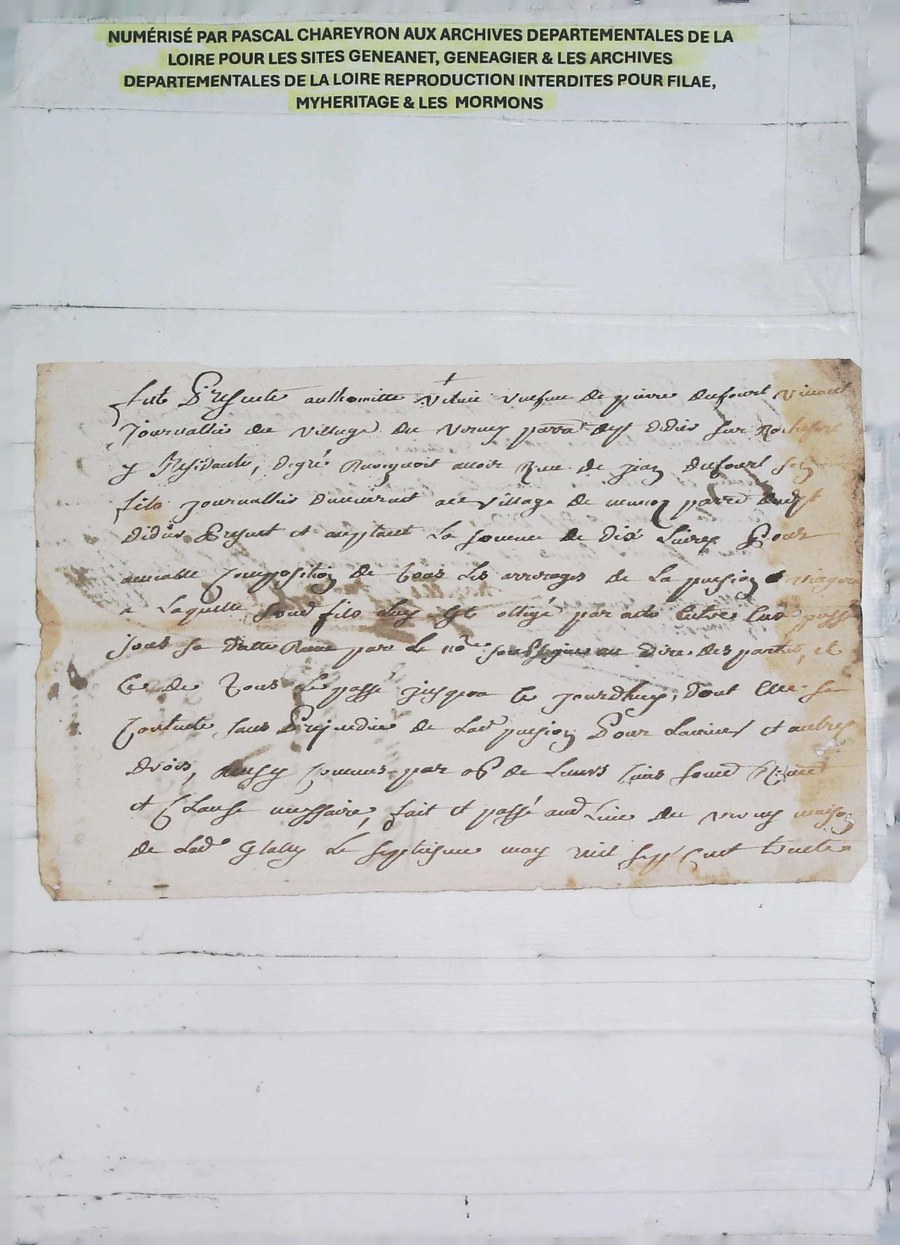 NUMÉRISÉ PAR PASCAL CHAREYRON AUX ARCHIVES DEPARTEMENTALES DE LA
LOIRE POUR LES SITES GENEANET, GENEAGIER & LES ARCHIVES
DEPARTEMENTALES DE LA LOIRE REPRODUCTION INTERDITES POUR FILAE,
MYHERITAGE & LES MORMONS
fut Presente anthoinette vefve de pierre dufourt vivant
Journallier du village du verney parr. de st didier sur Rochefort
y Residante, degré avoir de jean dufourt son
fils journallier au village de parr. dudt st
didier present et aceptant la somme de dix livres Pour
amiable Composition de tous les arrerages de la pension
a laquelle sond fils est obligé par acte entre eux passé
sous sa datte Receu par le no.re soubsigné au dire des parties, et
ce de Tous le passé jusques a ce jourdhuy, dont elle se
Contente, sans Prejudice de lad. pension Pour lavenir et autres
droits, Ainsy Convenu par ob de leurs biens soumis
et Clause necessaire, fait et passé aud lieu du verney maison
de lad. le septiesme may mil sept Cent trente